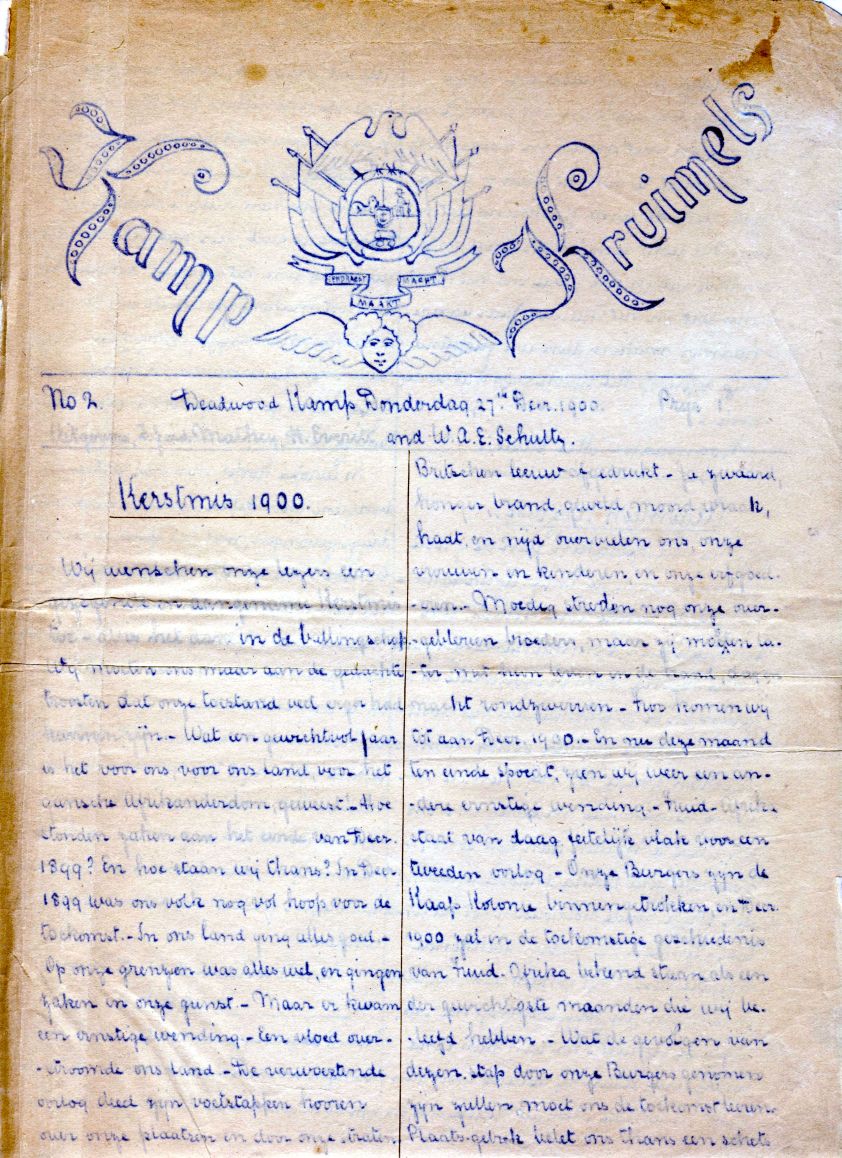 Kamp Kruimels
EENDRACHT MAAKT MACHT
No 2. Deadwood Kamp Donderdag 27ste Decr. 1900. Prijs 1d
Uitgevers, Everitt and W.A.E. Schultz.
Kerstmis 1900.
Wij wenschen onze lezers een
gezegende en aangename Kerstmis
toe - alles het dan in de ballingschap.
Wij moeten ons maar aan de gedachte
troosten dat onze toestand veel erger had
kunnen zijn. - Wat een gewichtvol jaar
is het voor ons voor ons land voor het
gansche Afrikanderdom, geweest! - Hoe
stonden zaken aan het einde van Decr.
1899? En hoe staan wij thans? In Decr
1899 was ons volk nog vol hoop voor de
toekomst. - In ons land ging alles goed. -
Op onze grenzen was alles wel, en gingen
zaken in onze gunst. - Maar er kwam
een ernstige wending. - Een vloed over-
-stroomde ons land - De verwoestende
oorlog deed zijn voetstappen hooren
over onze plaatsen en door onze straten
Britschen leeuw afgedrukt - Ja zwaard,
honger, brand, geweld, moord, wraak,
haat, en nijd overvielen ons, onze
vrouwen en kinderen en onze erfgoed-
-eren. - Moedig streden nog onze over-
-gebleven broeders, maar zij moeten la-
-ter, met hun leven in de hand, dag en
nacht rondzwerven - Zoo komen wij
tot aan Decr. 1900. - En nu deze maand
ten einde spoedt, zien wij weer een an-
-dere ernstige wending. - Zuid-Afrika
staat van daag feitelijk vlak voor een
tweeden oorlog - Onze Burgers zijn de
Kaap Kolonie binnengetrokken, en Decr.
1900 zal in de toekomstige geschiedenis
van Zuid-Afrika bekend staan als een
der gewichtigste maanden die wij be-
-leefd hebben - Wat de gevolgen van
dezen stap door onze Burgers genomen
zijn zullen, moet ons de toekomst leeren.
Plaats-gebrek belet ons thans een schets